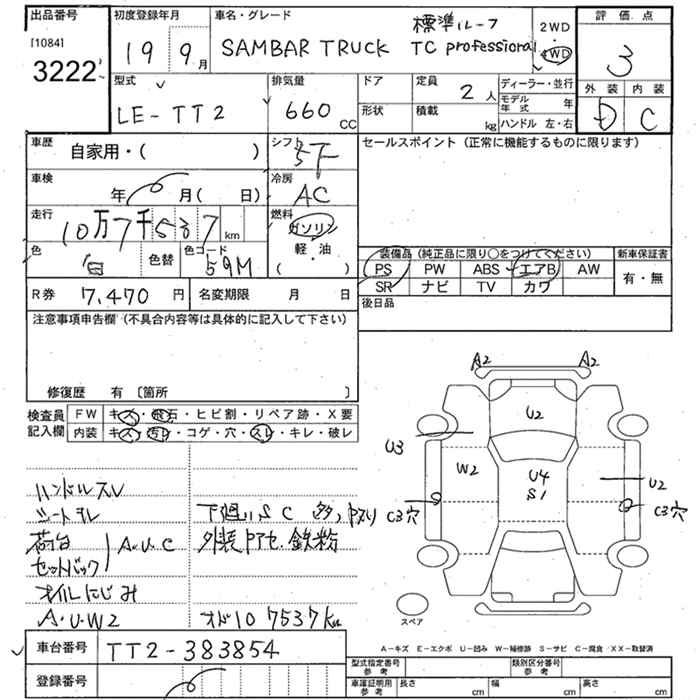 出品番号
[1084]
3222
初度登録年月
19 9月
車名・グレード
標準ルーフ
SAMBAR TRUCK TC professional
2WD
4WD
評価点
3
外装 内装
D C
型式
LE-TT2
排気量
660 CC
ドア
形状
定員 2人
積載 kg
ディーラー・並行
モデル年式 年
ハンドル 左・右
車歴 自家用・( )
シフト 5F
セールスポイント(正常に機能するものに限ります)
車検 年 月( 日)
冷房 AC
走行 10万7千537 km
燃料 ガソリン
軽・油
( )
色 白 色替 色コード 59M
装備品(純正品に限り○をつけてください)
新車保証書
PS PW ABS エアB AW
有・無
SR ナビ TV カワ
R券 7,470 円 名変期限 月 日
後日品
注意事項申告欄(不具合内容等は具体的に記入して下さい)
修復歴 有 〔箇所 〕
検査員記入欄
FW キズ・飛石・ヒビ割・リペア跡・X要
内装 キズ・汚レ・コゲ・穴・スレ・キレ・破レ
ハンドルスレ
シートヨレ
荷台 A.U.C
セットバック
オイルにじみ
A.U.W2
下廻りSC
外装 鉄粉
オド107537km
A2 A2
U2
U3
W2
U4
S1
U2
C3穴
C3穴
スペア
A-キズ E-エクボ U-凹み W-補修跡 S-サビ C-腐食 XX-取替済
車台番号 TT2-383854
登録番号
型式指定番号 参考
類別区分番号 参考
車庫証明用 参考
長さ cm 幅 cm 高さ cm